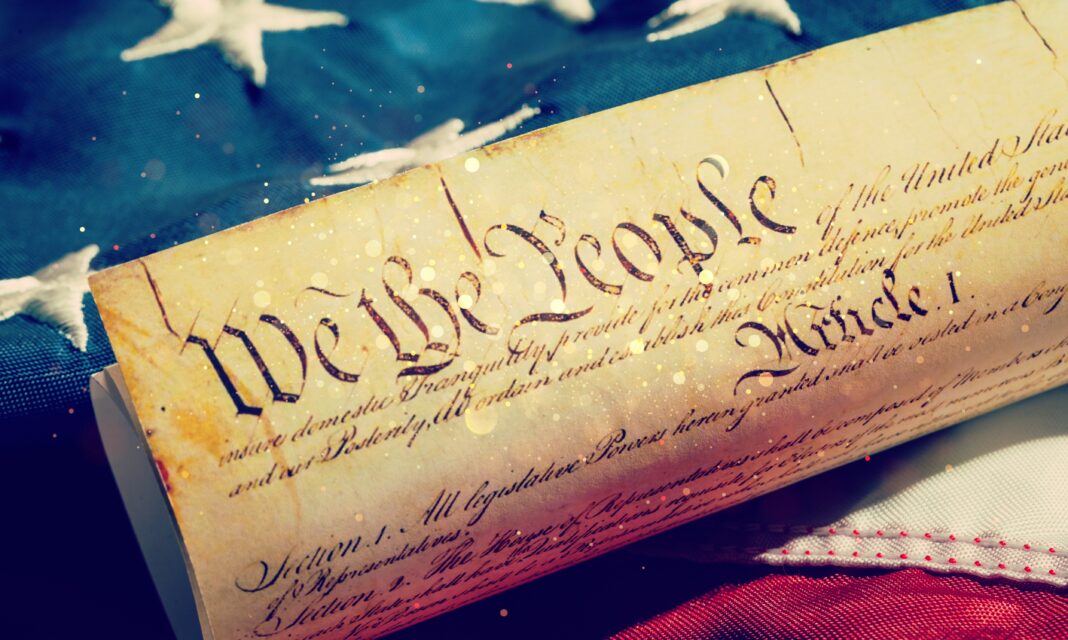 We the People of the United Sta
insure domestic Tranquility, provide for the common defence, promote the gene
and our Posterity, do ordain and establish this Constitution for the United Sta
Article. I.
Section. 1. All legislative Powers herein granted shall be vested in a Cong
of Representatives.
Section. 2. The House of Representatives shall be composed of Members
each State shall have the Qualifications requisite for Electors of the